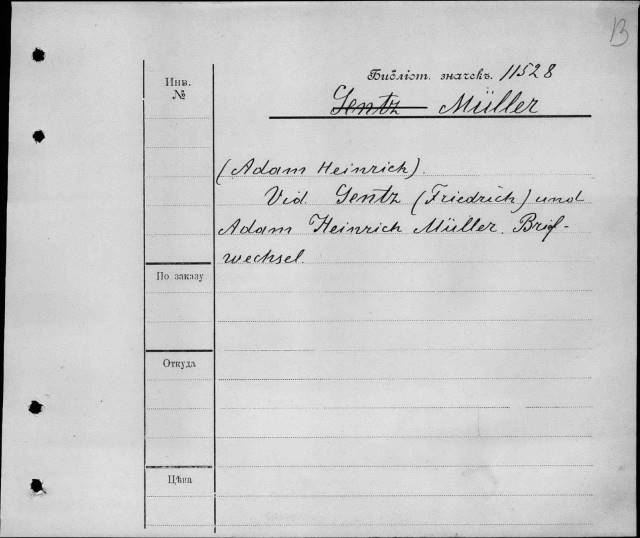 B
Библіот. значекъ. 11528
Gentz Müller
Инв.
№
(Adam Heinrich).
Vid. Gentz (Friedrich) und
Adam Heinrich Müller. Brief-
wechsel.
По заказу
Откуда
Цѣна